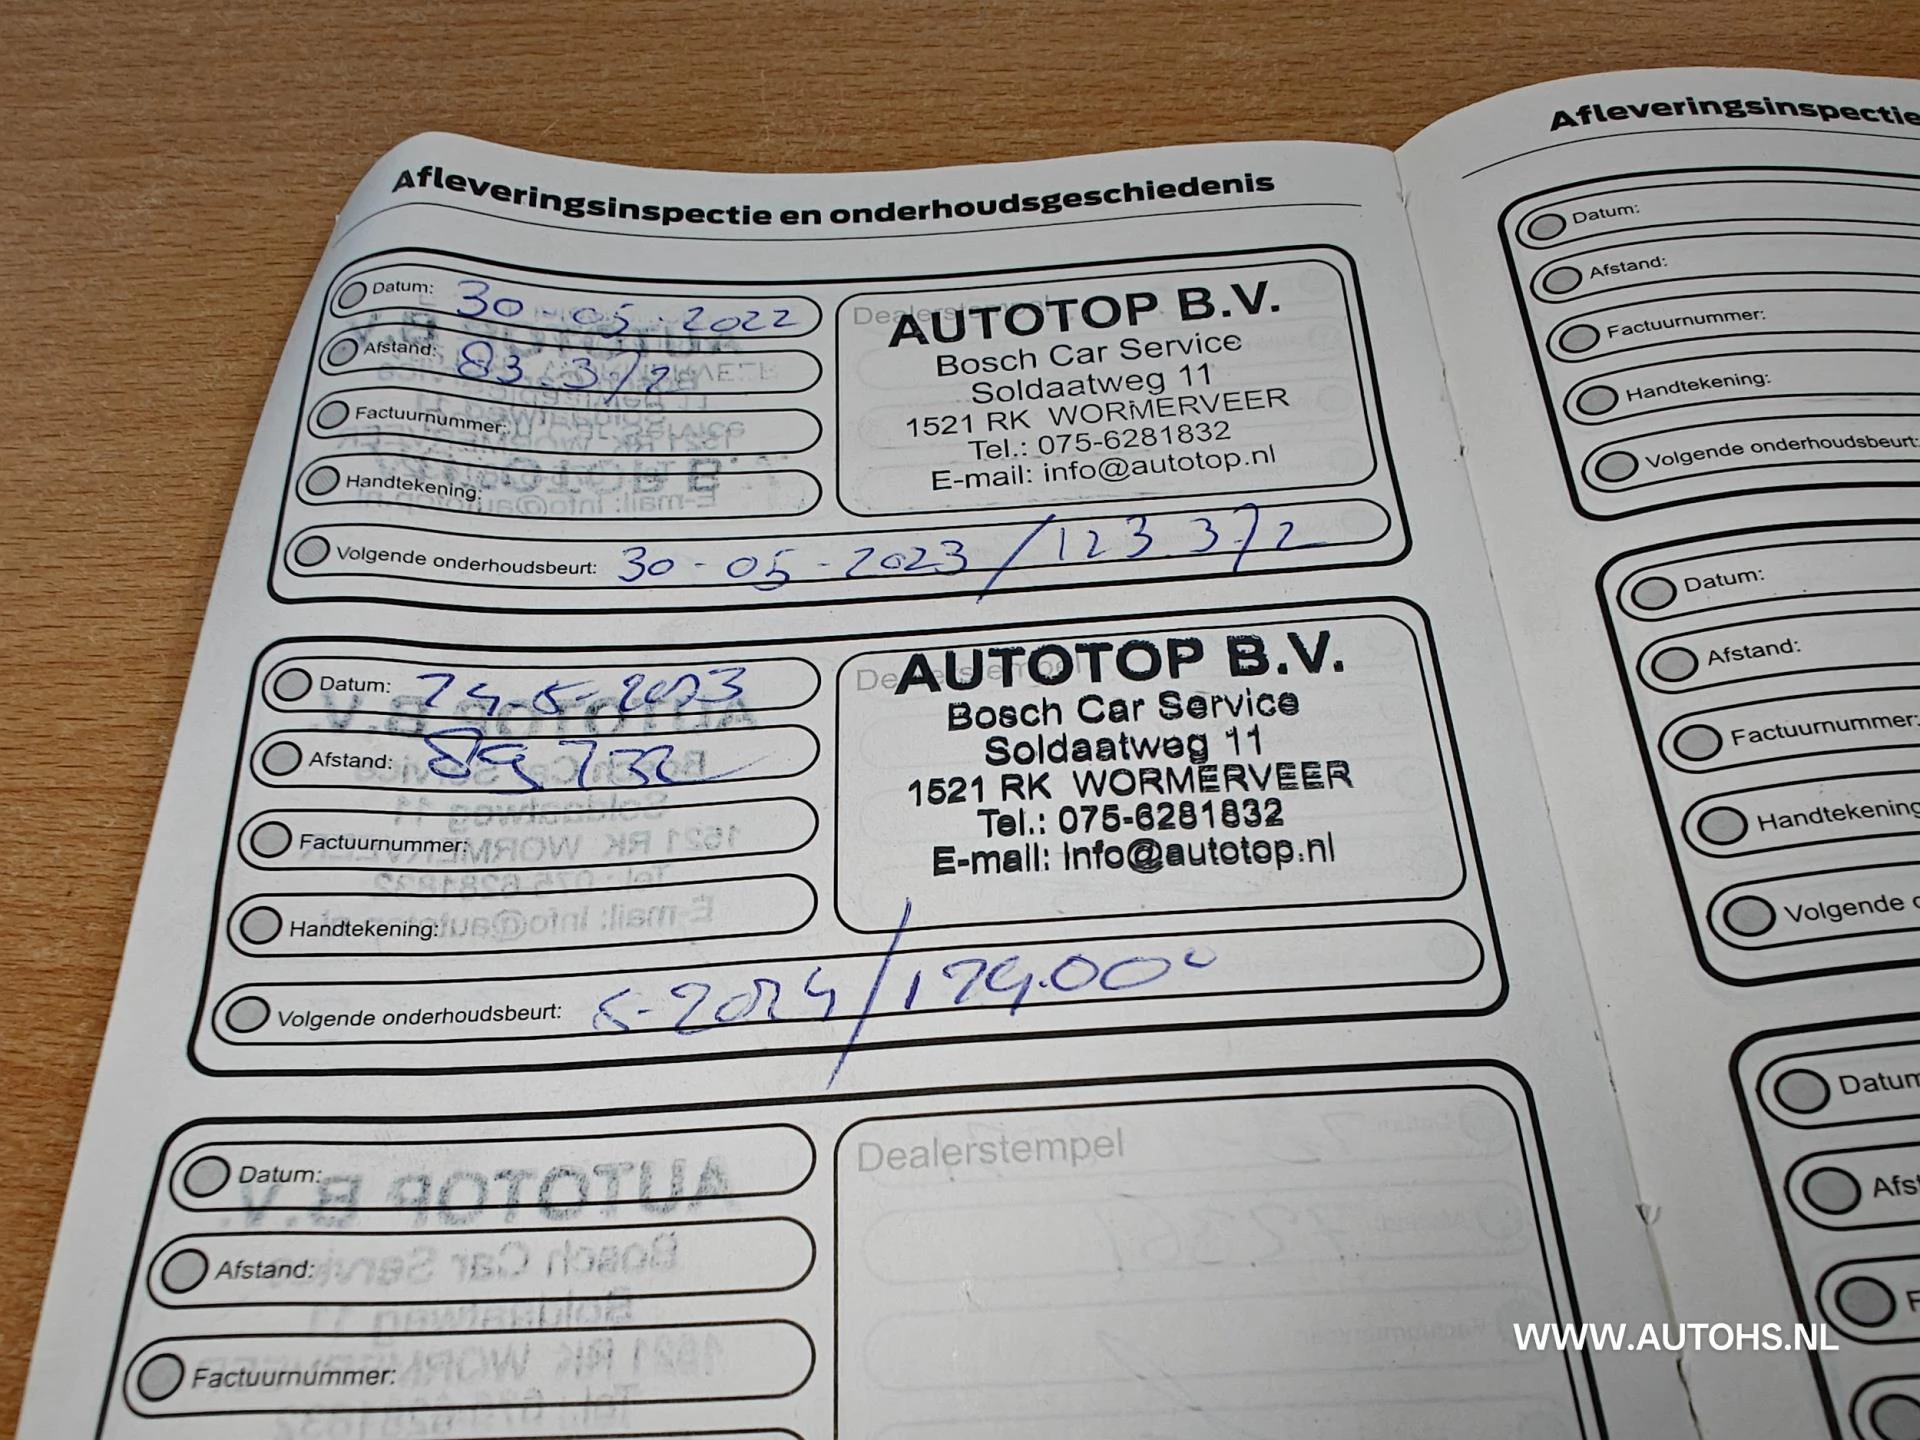 Afleveringsinspectie en onderhoudsgeschiedenis
Datum: 30-05-2022
Afstand: 83.372
Factuurnummer:
Handtekening:
Dealerstempel
AUTOTOP B.V.
Bosch Car Service
Soldaatweg 11
1521 RK WORMERVEER
Tel.: 075-6281832
E-mail: info@autotop.nl
Volgende onderhoudsbeurt: 30-05-2023/123.372
Datum: 24-5-2023
Afstand: 89.732
Factuurnummer:
Handtekening:
Dealerstempel
AUTOTOP B.V.
Bosch Car Service
Soldaatweg 11
1521 RK WORMERVEER
Tel.: 075-6281832
E-mail: info@autotop.nl
Volgende onderhoudsbeurt: 5-2024/
Datum:
Afstand:
Factuurnummer:
Dealerstempel
Afleveringsinspectie
Datum:
Afstand:
Factuurnummer:
Handtekening:
Volgende onderhoudsbeurt:
Datum:
Afstand:
Factuurnummer:
Handtekening
Volgende
Datum
WWW.AUTOHS.NL